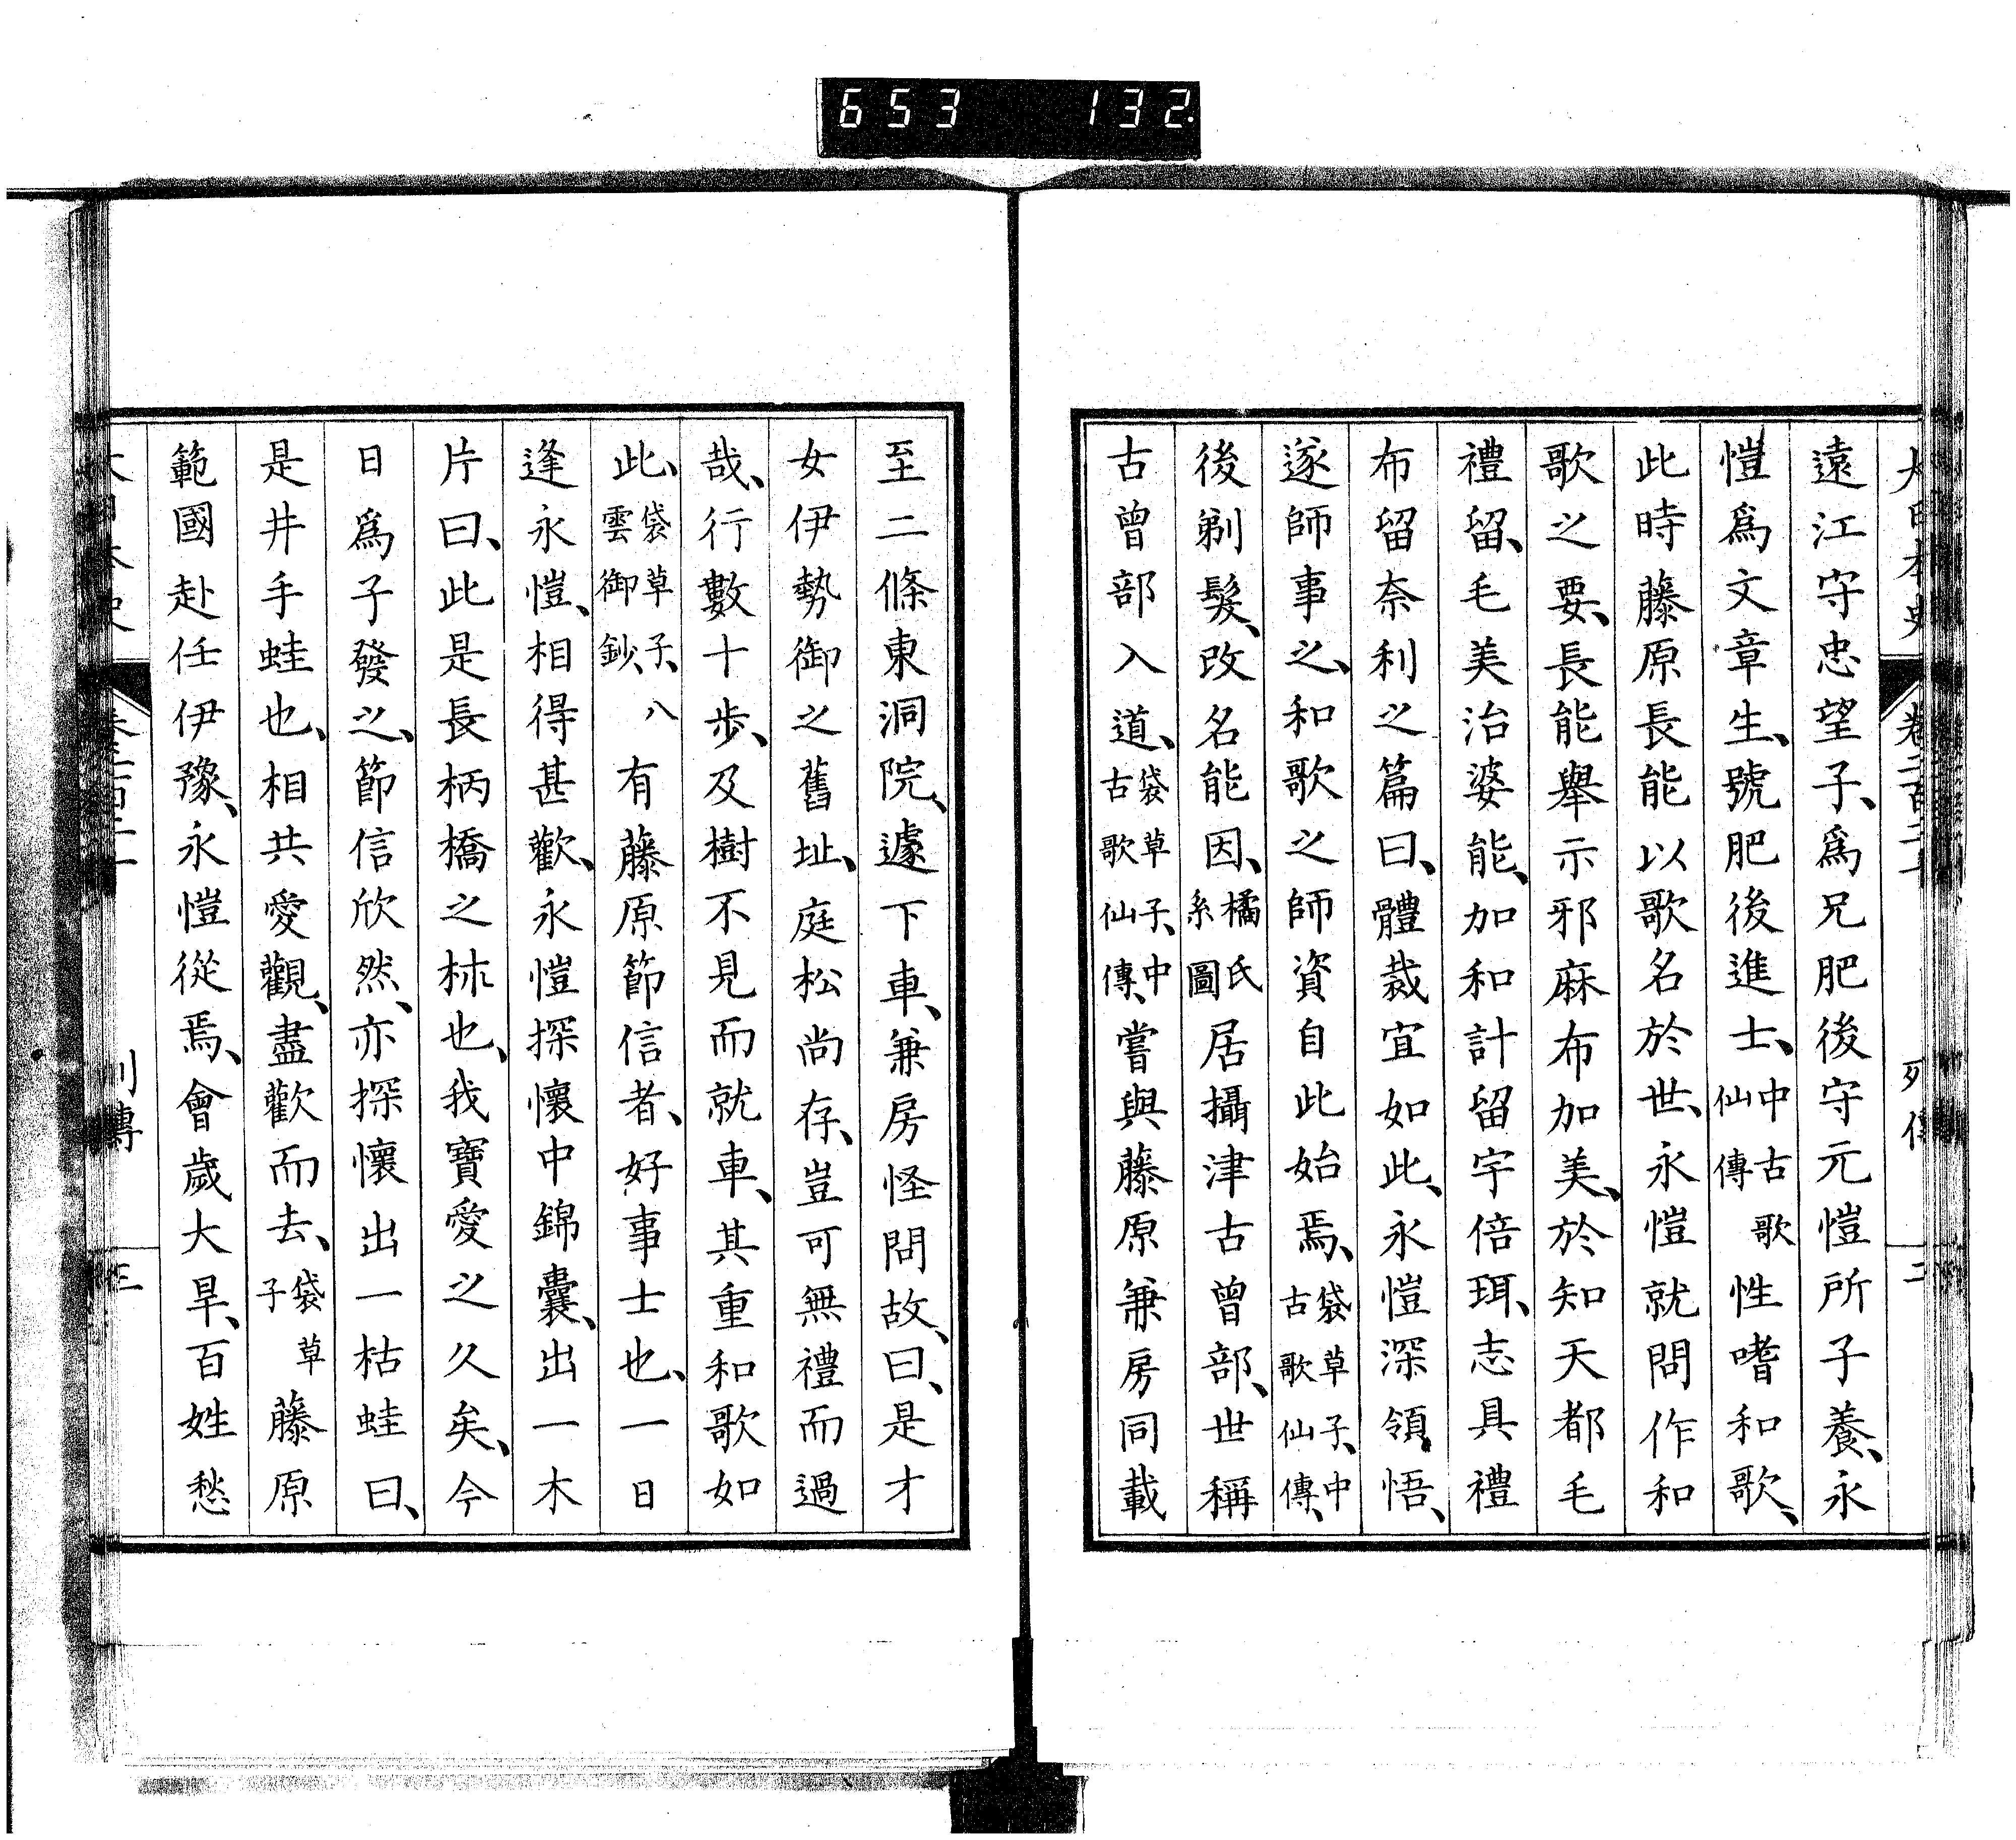 653 132.
大日本史 卷二百二十 列傳 二
遠江守忠望子、爲兄肥後守元愷所子養、永
愷爲文章生、號肥後進士、中古歌仙傳性嗜和歌、
此時藤原長能以歌名於世、永愷就問作和
歌之要、長能舉示邪麻布加美、於知天都毛
禮留、毛美治婆能、加和計留宇倍珥、志具禮
布留奈利之篇曰、體裁宜如此、永愷深領悟、
遂師事之、和歌之師資自此始焉、袋草子、中古歌仙傳、
後剃髮、改名能因、橘氏系圖居攝津古曾部、世稱
古曾部入道、袋草子、中古歌仙傳、嘗與藤原兼房同載
至二條東洞院、遽下車、兼房怪問故、曰、是才
女伊勢御之舊址、庭松尚存、豈可無禮而過
哉、行數十步、及樹不見而就車、其重和歌如
此、袋草子、八雲御鈔、有藤原節信者、好事士也、一日
逢永愷、相得甚歡、永愷探懷中錦囊、出一木
片曰、此是長柄橋之㭆也、我寶愛之久矣、今
日爲子發之、節信欣然、亦探懷出一枯蛙曰、
是井手蛙也、相共愛觀、盡歡而去、袋草子藤原
範國赴任伊豫、永愷從焉、會歲大旱、百姓愁